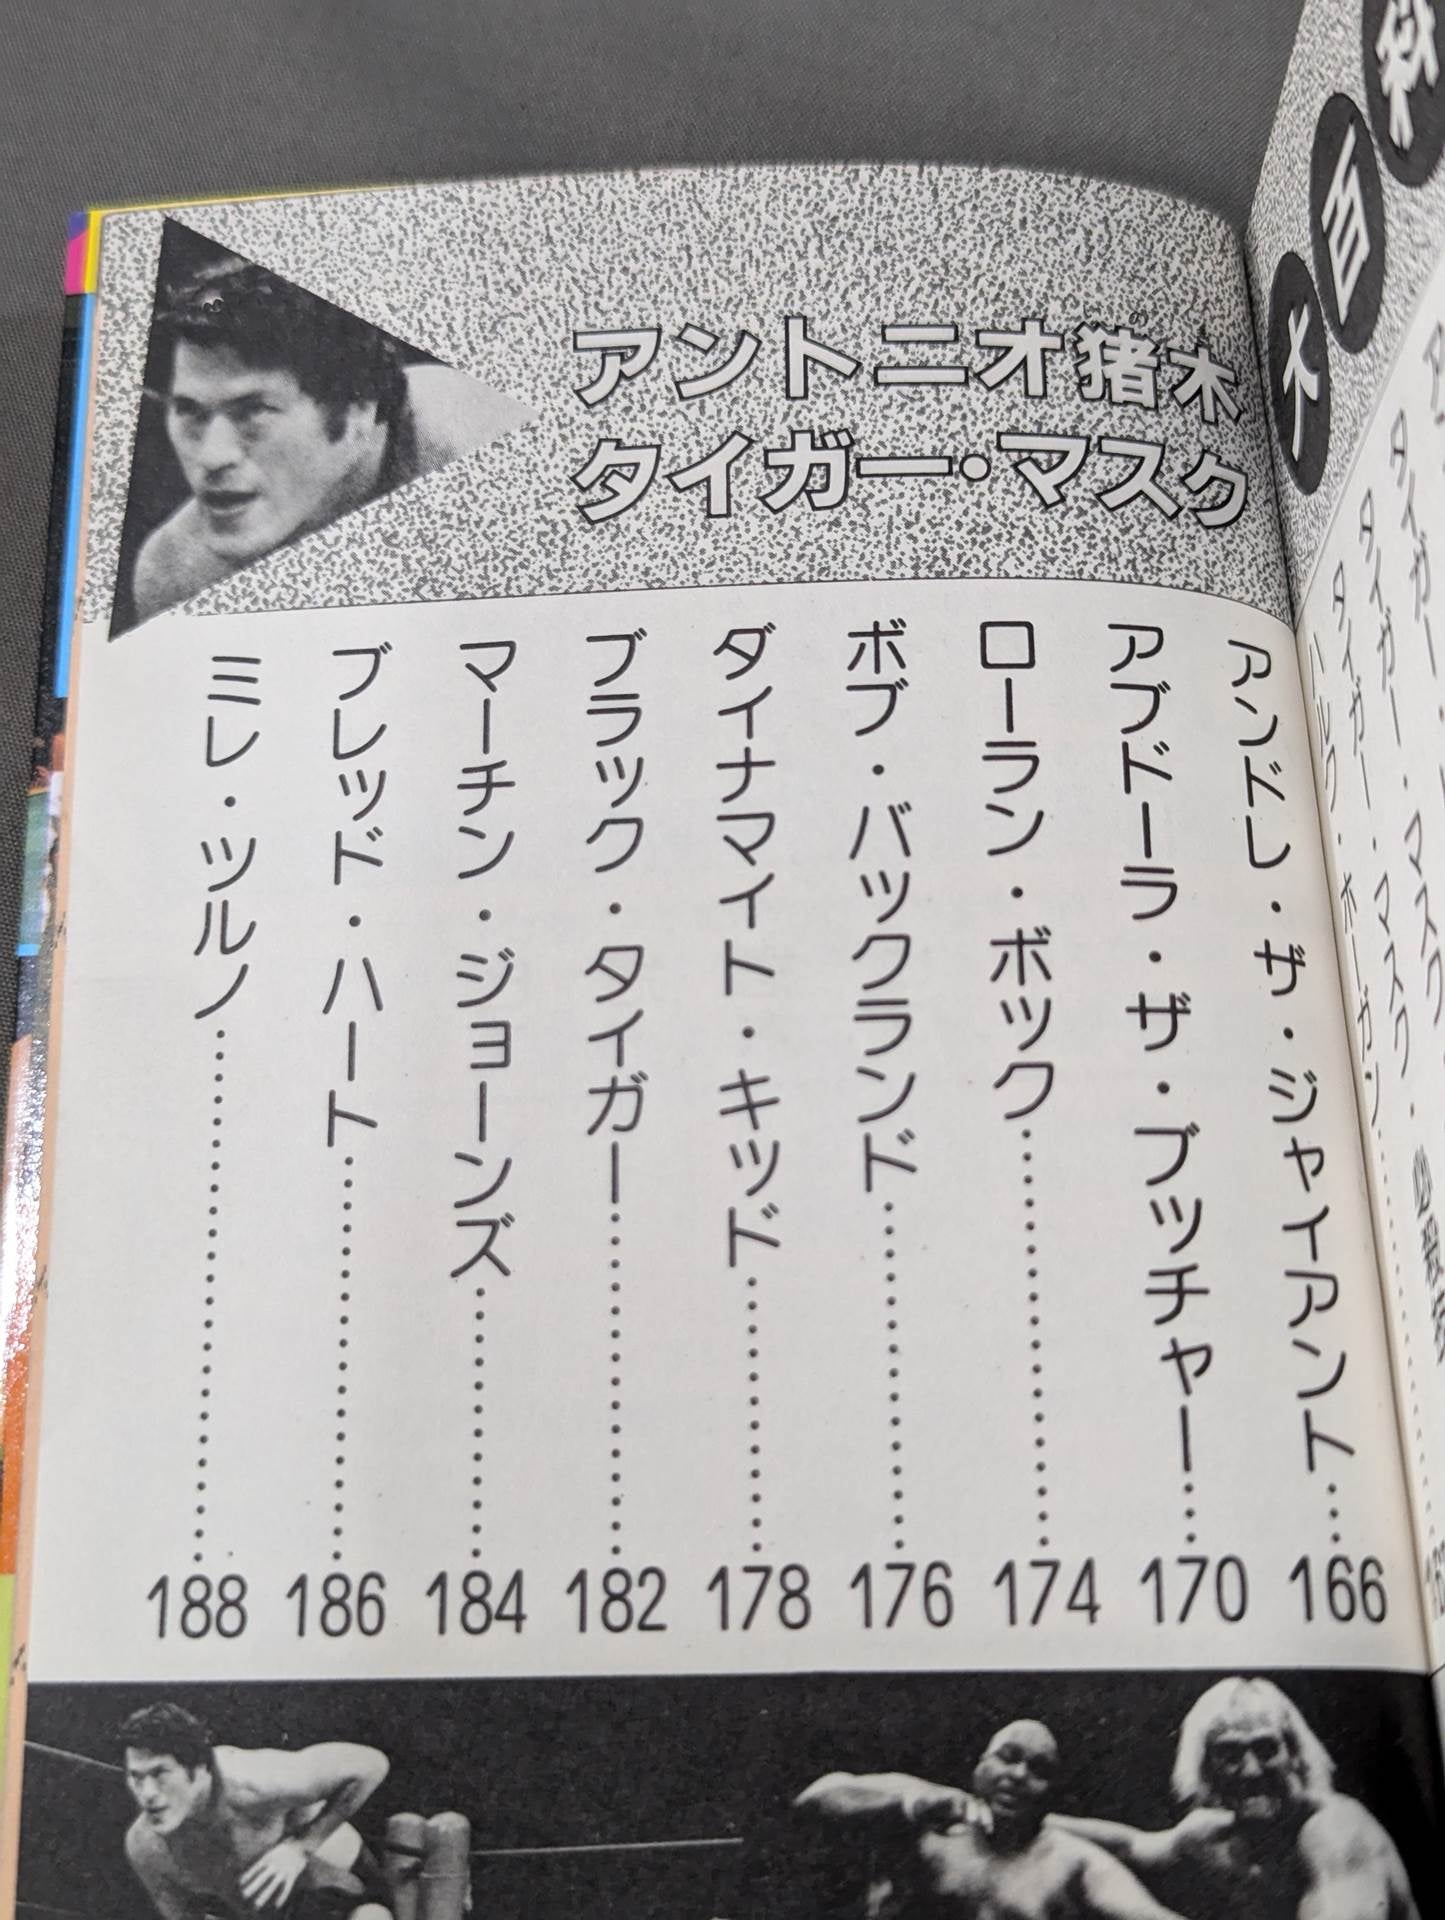 アントニオ猪木
タイガー・マスク
アンドレ・ザ・ジャイアント…166
アブドーラ・ザ・ブッチャー…170
ローラン・ボック………174
ボブ・バックランド………176
ダイナマイト・キッド………178
ブラック・タイガー………182
マーチン・ジョーンズ………184
ブレッド・ハート………186
ミレ・ツルノ………188
百
タイガー・マスク
タイガー・マスク
タイガー・
ハルク・ホーガン